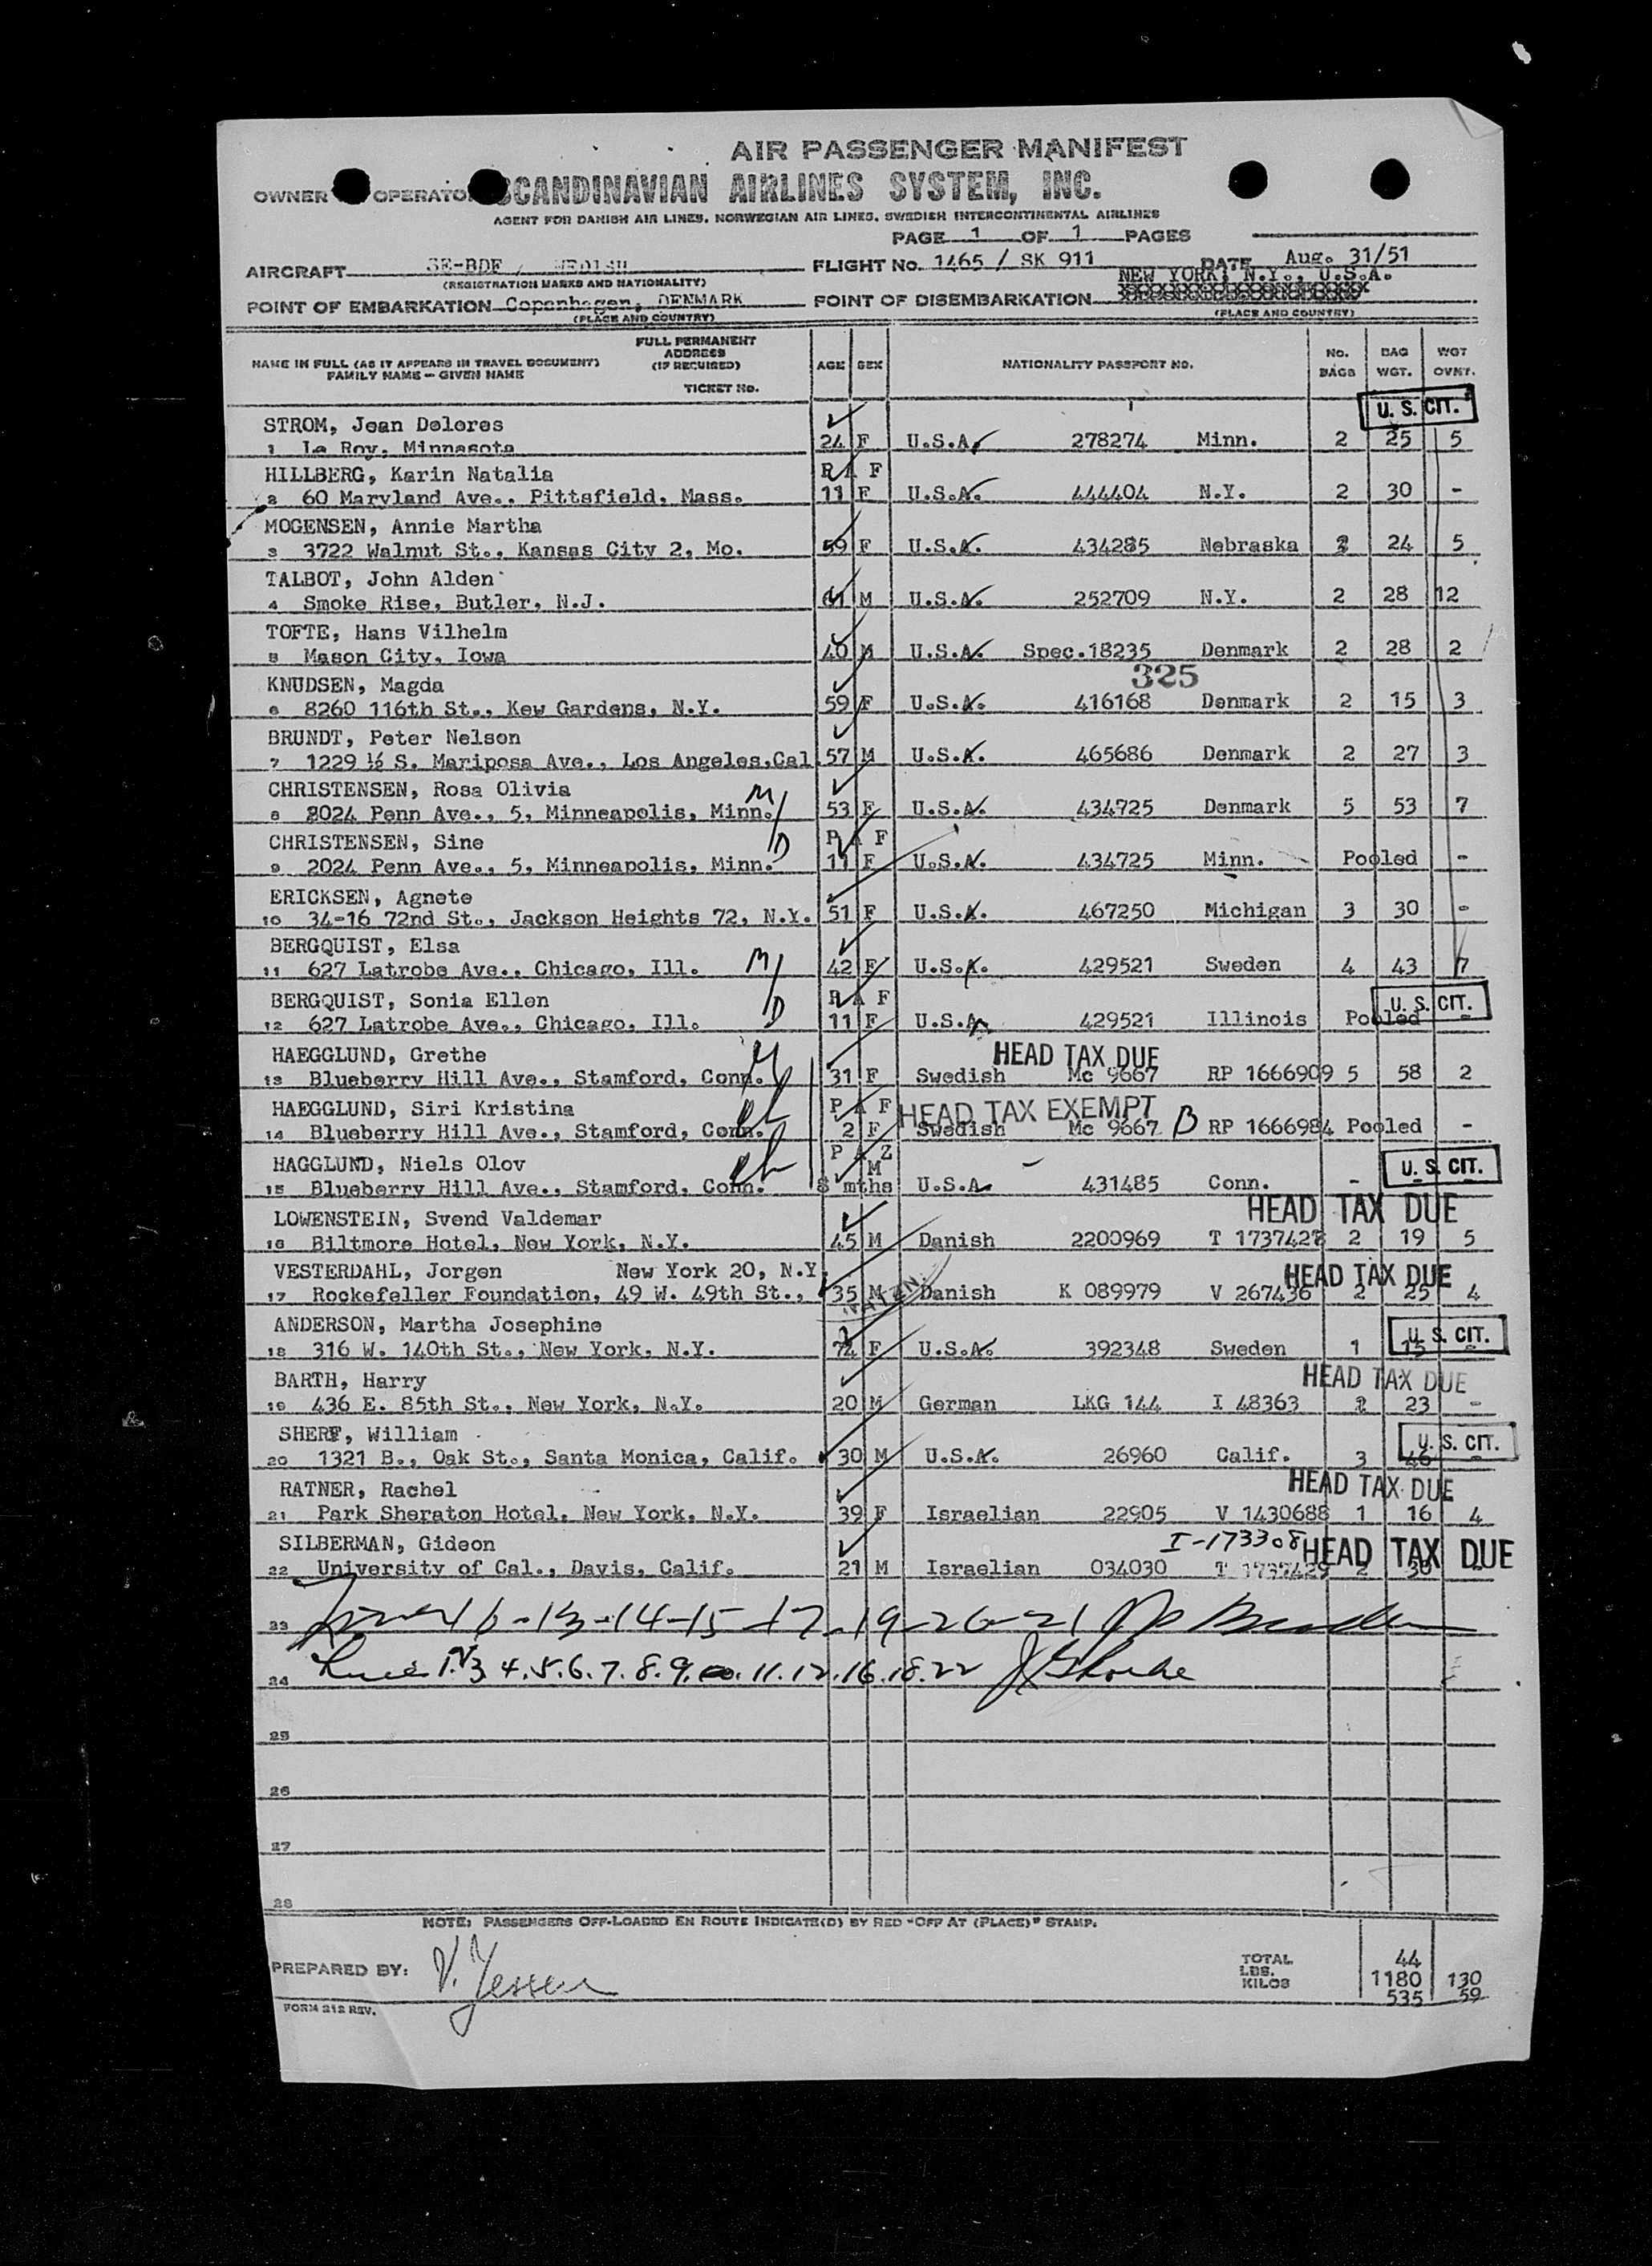 AIR PASSENGER MANIFEST
OWNER OPERATO SCANDINAVIAN AIRLINES SYSTEM, INC.
AGENT FOR DANISH AIR LINES, NORWEGIAN AIR LINES, SWEDISH INTERCONTINENTAL AIRLINES
PAGE 1 OF 1 PAGES
AIRCRAFT SE-BDF / FLIGHT No. 1465 / SK 911 DATE Aug. 31/51
(REGISTRATION MARKS AND NATIONALITY) NEW YORK, N.Y., U.S.A.
POINT OF EMBARKATION Copenhagen, DENMARK POINT OF DISEMBARKATION
(PLACE AND COUNTRY) (PLACE AND COUNTRY)
NAME IN FULL (AS IT APPEARS IN TRAVEL DOCUMENT) FAMILY NAME - GIVEN NAME FULL PERMANENT ADDRESS (IF REQUIRED) TICKET No. AGE SEX NATIONALITY PASSPORT NO. No. BAGS BAG WGT. WGT OVNT.
U. S. CIT.
STROM, Jean Dolores
1 Le Roy, Minnesota 24 F U.S.A. 278274 Minn. 2 25 5
HILLBERG, Karin Natalia R A F
2 60 Maryland Ave., Pittsfield, Mass. 11 F U.S.A. 444404 N.Y. 2 30 -
MOGENSEN, Annie Martha
3 3722 Walnut St., Kansas City 2, Mo. 59 F U.S.A. 434285 Nebraska 2 24 5
TALBOT, John Alden
4 Smoke Rise, Butler, N.J. M U.S.A. 252709 N.Y. 2 28 12
TOFTE, Hans Vilhelm
5 Mason City, Iowa 40 M U.S.A. Spec.18235 Denmark 2 28 2
325
KNUDSEN, Magda
6 8260 116th St., Kew Gardens, N.Y. 59 F U.S.A. 416168 Denmark 2 15 3
BRUNDT, Peter Nelson
7 1229 ½ S. Mariposa Ave., Los Angeles,Cal 57 M U.S.A. 465686 Denmark 2 27 3
CHRISTENSEN, Rosa Olivia M
8 2024 Penn Ave., 5, Minneapolis, Minn. 53 F U.S.A. 434725 Denmark 5 53 7
CHRISTENSEN, Sine D P A F
9 2024 Penn Ave., 5, Minneapolis, Minn. 11 F U.S.A. 434725 Minn. Pooled -
ERICKSEN, Agnete
10 34-16 72nd St., Jackson Heights 72, N.Y. 51 F U.S.A. 467250 Michigan 3 30 -
BERGQUIST, Elsa
11 627 Latrobe Ave., Chicago, Ill. M 42 F U.S.A. 429521 Sweden 4 43 7
BERGQUIST, Sonia Ellen R A F U. S. CIT.
12 627 Latrobe Ave., Chicago, Ill. D 11 F U.S.A. 429521 Illinois Pooled -
HAEGGLUND, Grethe M HEAD TAX DUE
13 Blueberry Hill Ave., Stamford, Conn. 31 F Swedish Mc 9667 RP 1666909 5 58 2
HAEGGLUND, Siri Kristina ch P A F HEAD TAX EXEMPT
14 Blueberry Hill Ave., Stamford, Conn. 2 F Swedish Mc 9667 B RP 1666984 Pooled -
HAGGLUND, Niels Olov ch P A Z M U. S. CIT.
15 Blueberry Hill Ave., Stamford, Conn. 8 mths U.S.A. 431485 Conn. - - -
LOWENSTEIN, Svend Valdemar HEAD TAX DUE
16 Biltmore Hotel, New York, N.Y. 45 M Danish 2200969 T 1737428 2 19 5
VESTERDAHL, Jorgen New York 20, N.Y. HEAD TAX DUE
17 Rockefeller Foundation, 49 W. 49th St., 35 M Danish K 089979 V 267436 2 25 4
ANDERSON, Martha Josephine U. S. CIT.
18 316 W. 140th St., New York, N.Y. 74 F U.S.A. 392348 Sweden 1 15 -
BARTH, Harry HEAD TAX DUE
19 436 E. 85th St., New York, N.Y. 20 M German LKG 144 I 48363 2 23 -
SHERF, William U. S. CIT.
20 1321 B., Oak St., Santa Monica, Calif. 30 M U.S.A. 26960 Calif. 3 46 -
RATNER, Rachel HEAD TAX DUE
21 Park Sheraton Hotel, New York, N.Y. 39 F Israelian 22905 V 1430688 1 16 4
SILBERMAN, Gideon I-173308 HEAD TAX DUE
22 University of Cal., Davis, Calif. 21 M Israelian 034030 T 1737429 2 30 -
23 10-13-14-15-17-19-20-21
24 Lines 1. 3 4.5.6.7.8.9. 11.12.16.18.22
25
26
27
28
NOTE: PASSENGERS OFF-LOADED EN ROUTE INDICATE(D) BY RED "OFF AT (PLACE)" STAMP.
PREPARED BY: V. Jessen
TOTAL 44
LBS. 1180 130
KILOS 535 59
FORM 212 REV.